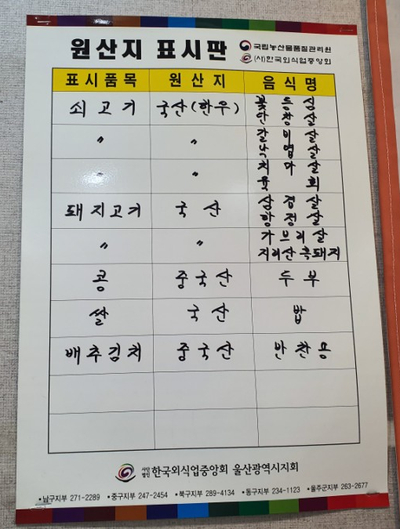 원산지 표시판
국립농산물품질관리원
(사)한국외식업중앙회
표시품목 원산지 음식명
쇠고기 국산(한우) 꽃등심
안창살
〃 〃 갈비살
낙엽살
〃 〃 치마살
육회
돼지고기 국산 삼겹살
항정살
〃 〃 가브리살
지리산흑돼지
콩 중국산 두부
쌀 국산 밥
배추김치 중국산 반찬용
사단법인 한국외식업중앙회 울산광역시지회
•남구지부 271-2289 •중구지부 247-2454 •북구지부 289-4134 •동구지부 234-1123 •울주군지부 263-2677